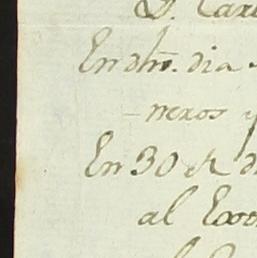 D. Car
En dho. dia
neros y
En 30 de d
al Exo